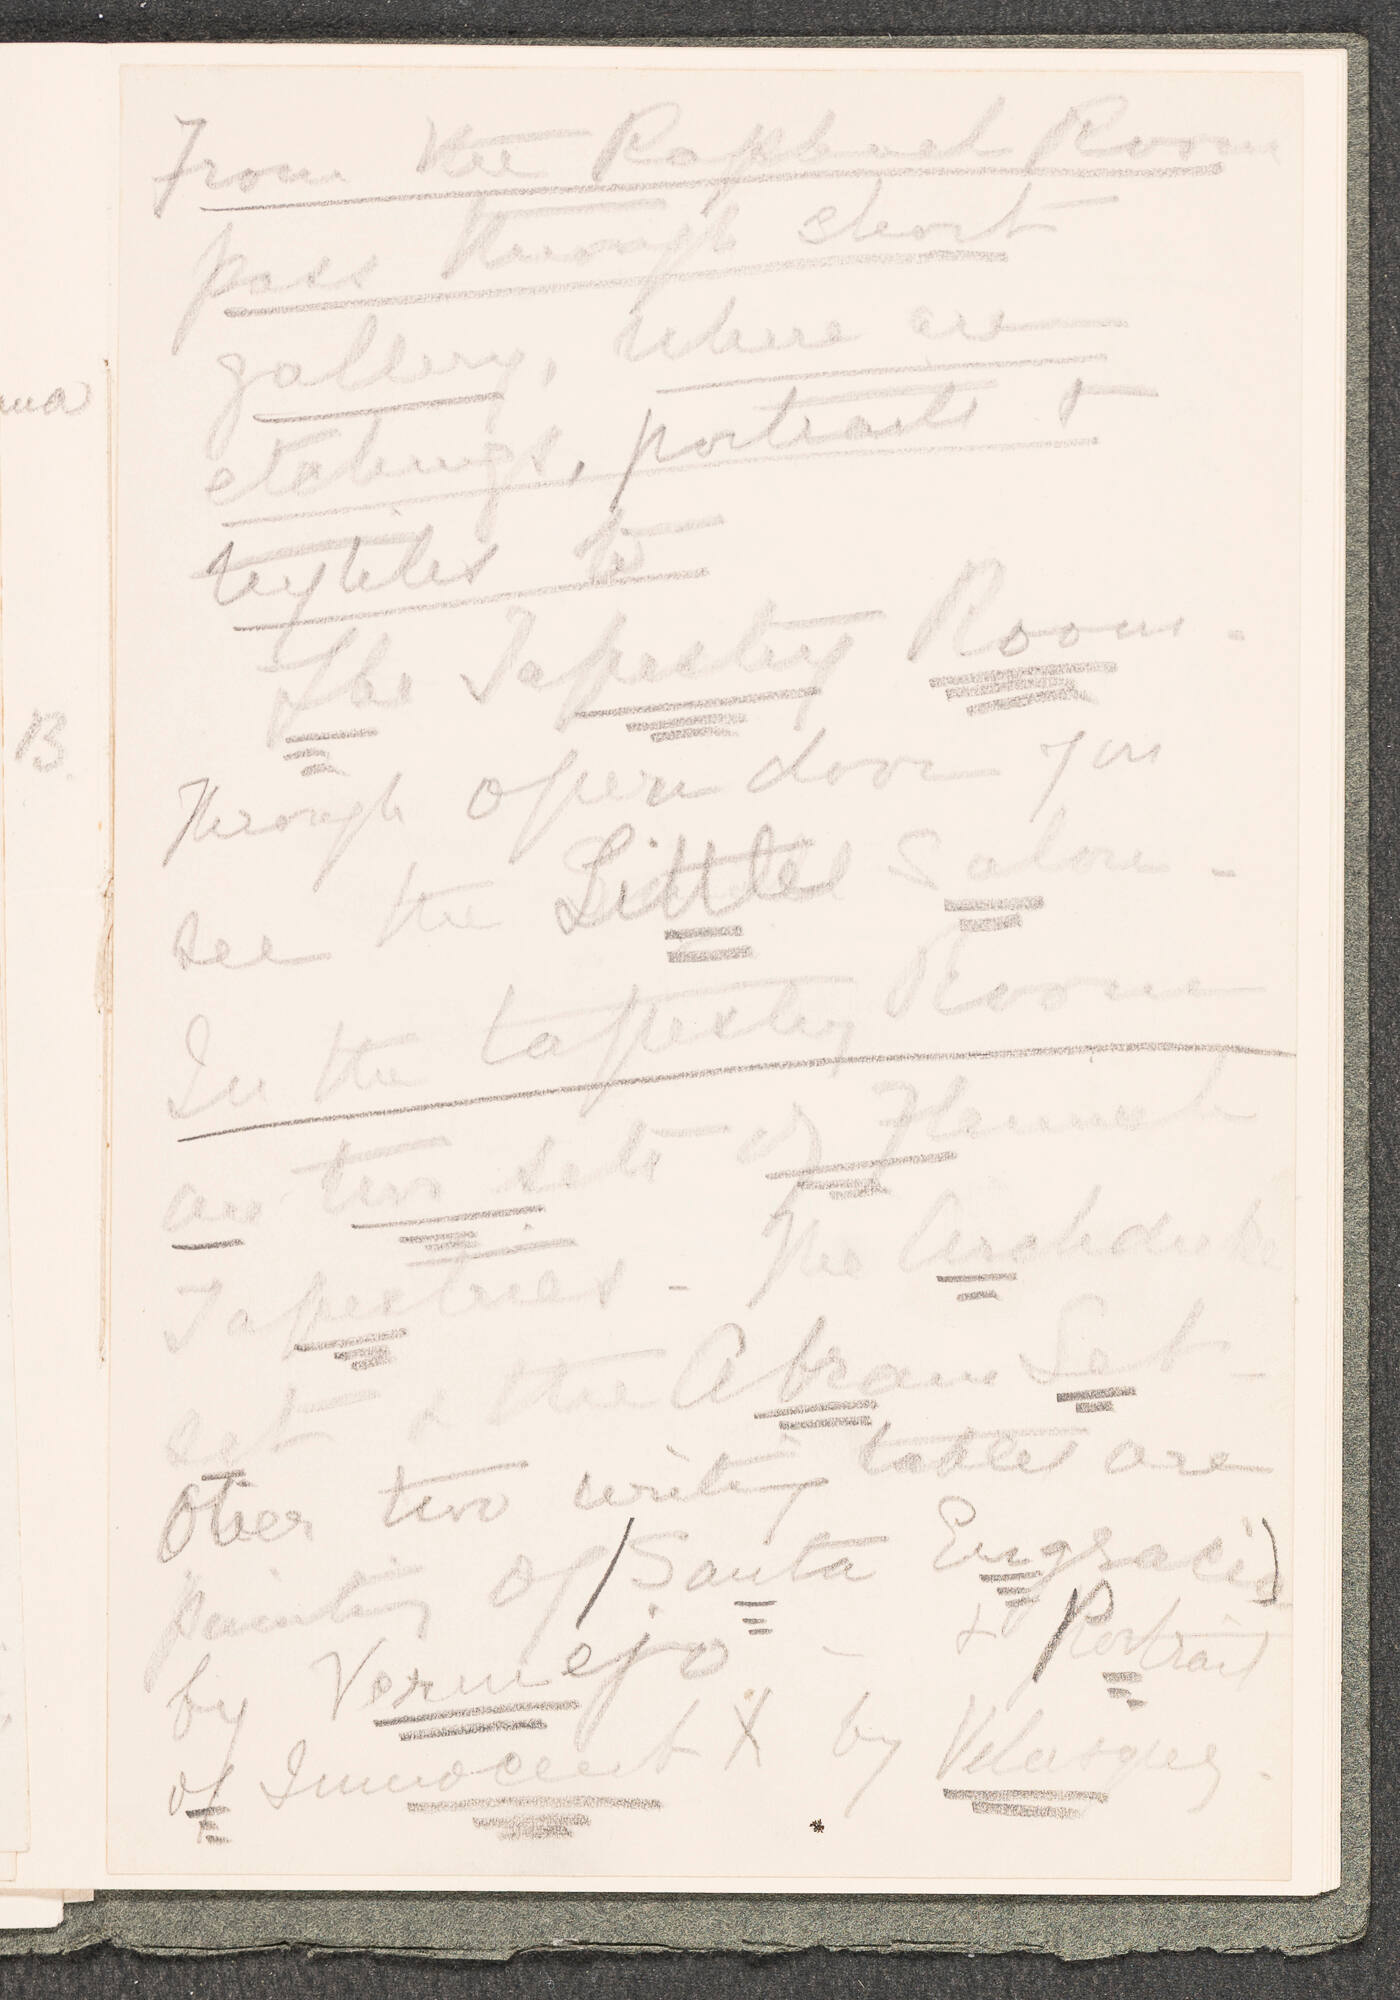 From the Raphael Room
pass through short
gallery, where are
etchings, portraits &
textiles to
The Tapestry Room.
Through open door you
see the Little Salon -
In the tapestry Room
are two sets of Flemish
Tapestries - The Archduke
set & the Abram Set -
Over two writing tables are
painting of Santa Engracia
by Vermejo - & Portrait
of Innocent X by Velasquez.
B.